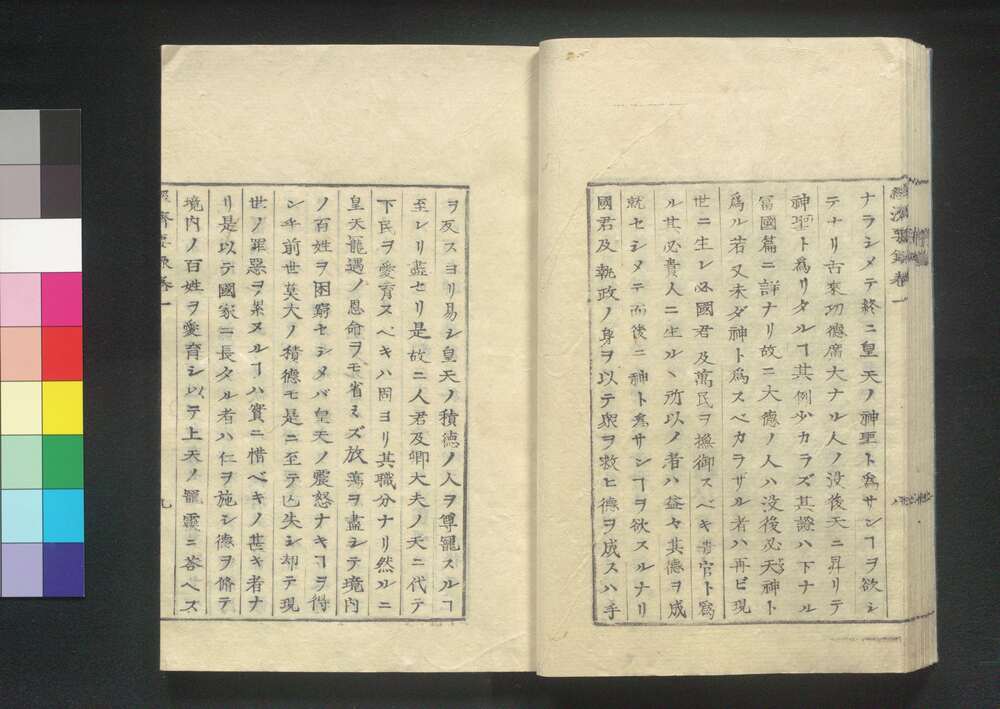 經濟要錄卷一
ナラシメテ終ニ皇天ノ神聖ト爲サンヿヲ欲シ
テナリ古來功德廣大ナル人ノ沒後天ニ昇リテ
神聖ト爲リタルヿ其例少カラズ其證ハ下ナル
富國篇ニ詳ナリ故ニ大德ノ人ハ沒後必天神ト
爲ル若又未ダ神ト爲スベカラザル者ハ再ビ現
世ニ生レ必國君及萬民ヲ撫御スベキ貴官ト爲
ル其必貴人ニ生ルヽ所以ノ者ハ益々其德ヲ成
就セシメテ而後ニ神ト爲サンヿヲ欲スルナリ
國君及執政ノ身ヲ以テ衆ヲ救ヒ德ヲ成スハ手
ヲ反スヨリ易シ皇天ノ積德ノ人ヲ尊寵スルヿ
至レリ盡セリ是故ニ人君及卿大夫ノ天ニ代テ
下民ヲ愛育スベキハ固ヨリ其職分ナリ然ルニ
皇天寵遇ノ恩命ヲモ省ミズ放蕩ヲ盡シテ境內
ノ百姓ヲ困窮セシメバ皇天ノ震怒ナキヿヲ得
ンヤ前世莫大ノ積德モ是ニ至テ亡失シ却テ現
世ノ罪惡ヲ累ヌルヿハ實ニ惜ベキノ甚キ者ナ
リ是以テ國家ニ長タル者ハ仁ヲ施シ德ヲ脩テ
境內ノ百姓ヲ愛育シ以テ上天ノ寵靈ニ答ベズ
經濟要錄卷一
九